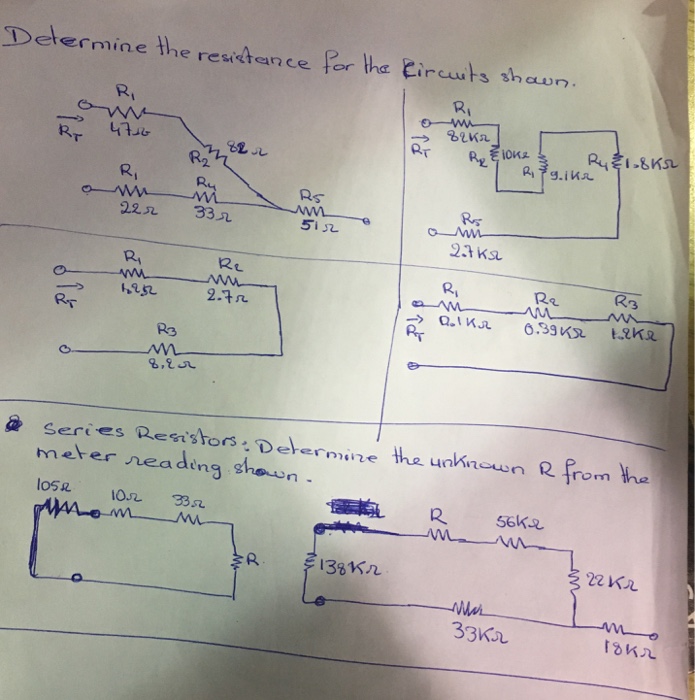 Determine the resistance for the Circuits shown.
R1
47Ω
RT
R2
82Ω
R1
22Ω
R4
33Ω
R5
51Ω
R1
82KΩ
RT
R2
10KΩ
R1
9.1KΩ
R4
1.8KΩ
R5
2.7KΩ
R1
1.2Ω
RT
R2
2.7Ω
R3
8.2Ω
R1
0.1KΩ
RT
R2
0.39KΩ
R3
1.2KΩ
Series Resistors: Determine the unknown R from the
meter reading shown.
105Ω
10Ω
33Ω
R
R
56KΩ
138KΩ
22KΩ
33KΩ
18KΩ